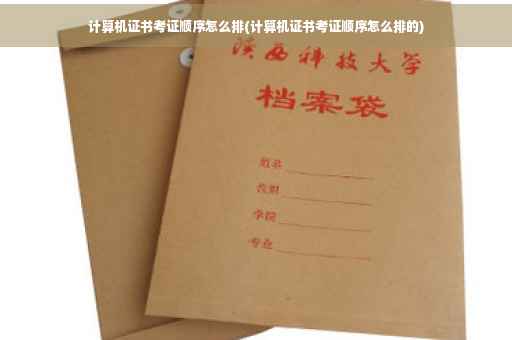 计算机证书考证顺序怎么排(计算机证书考证顺序怎么排的)
陕西科技大学
档案袋
姓名
学院
专业